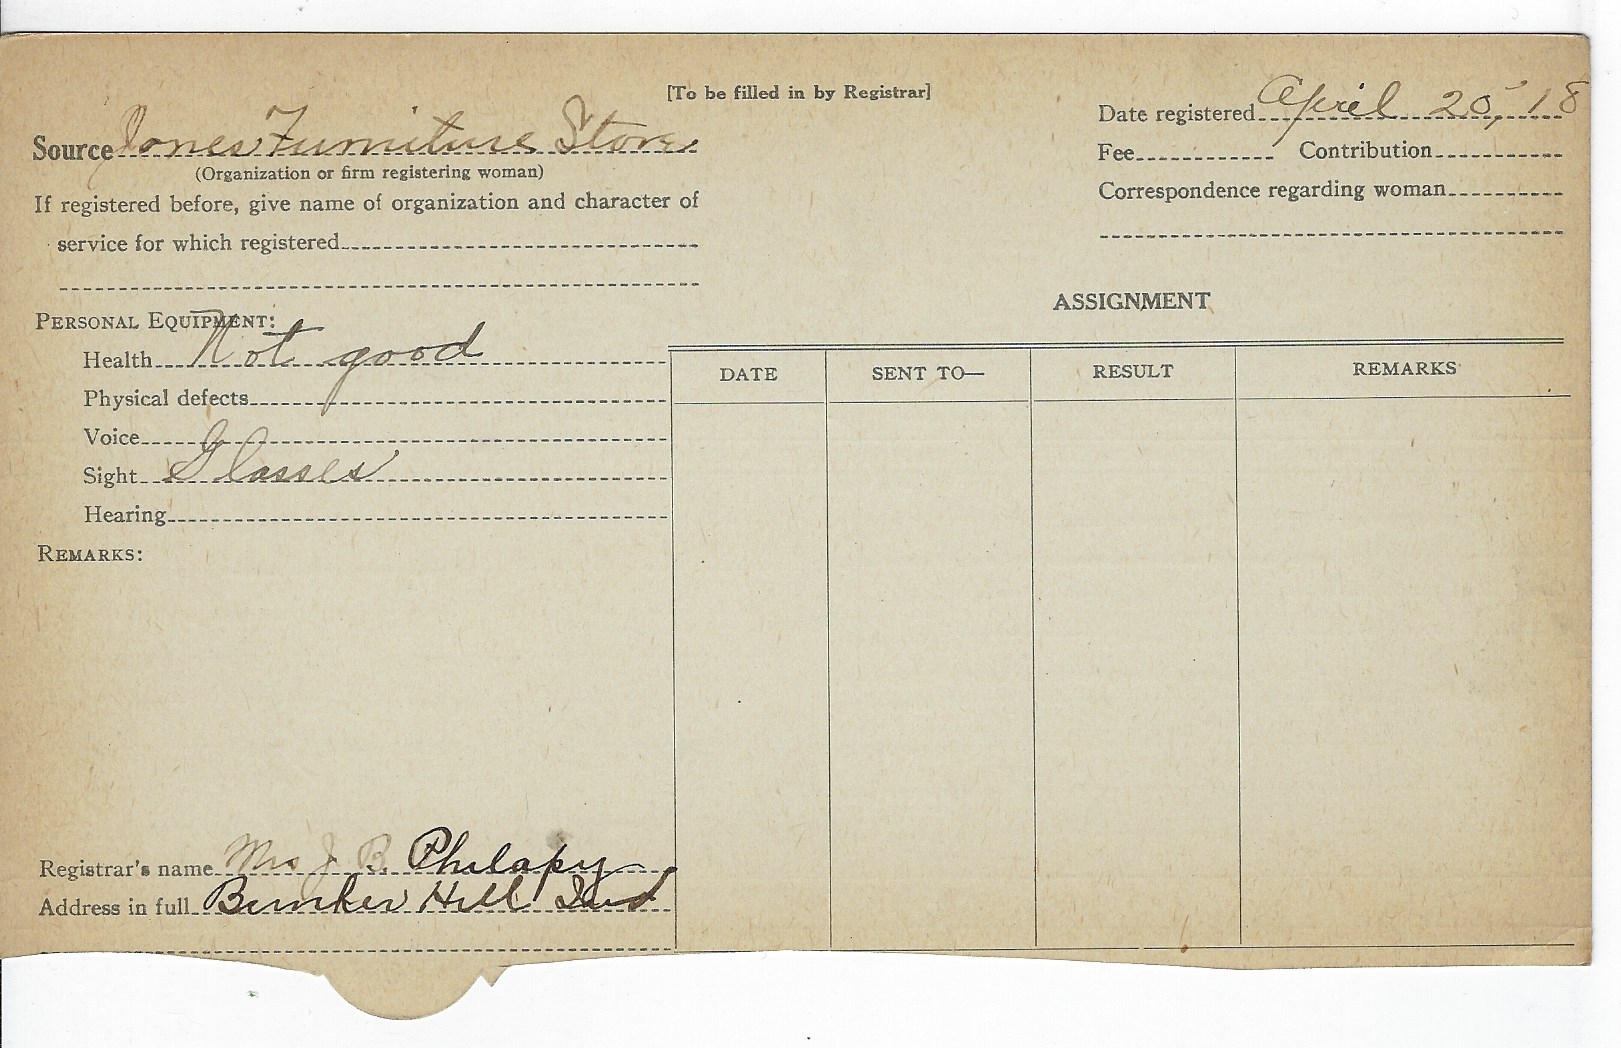 [To be filled in by Registrar]
Source Jones Furniture Store
(Organization or firm registering woman)
If registered before, give name of organization and character of
service for which registered
Date registered April 20, 18
Fee Contribution
Correspondence regarding woman
PERSONAL EQUIPMENT:
Health Not good
Physical defects
Voice
Sight Glasses
Hearing
REMARKS:
ASSIGNMENT
DATE SENT TO— RESULT REMARKS
Registrar's name Mrs J. B. Philapy
Address in full Bunker Hill Ind